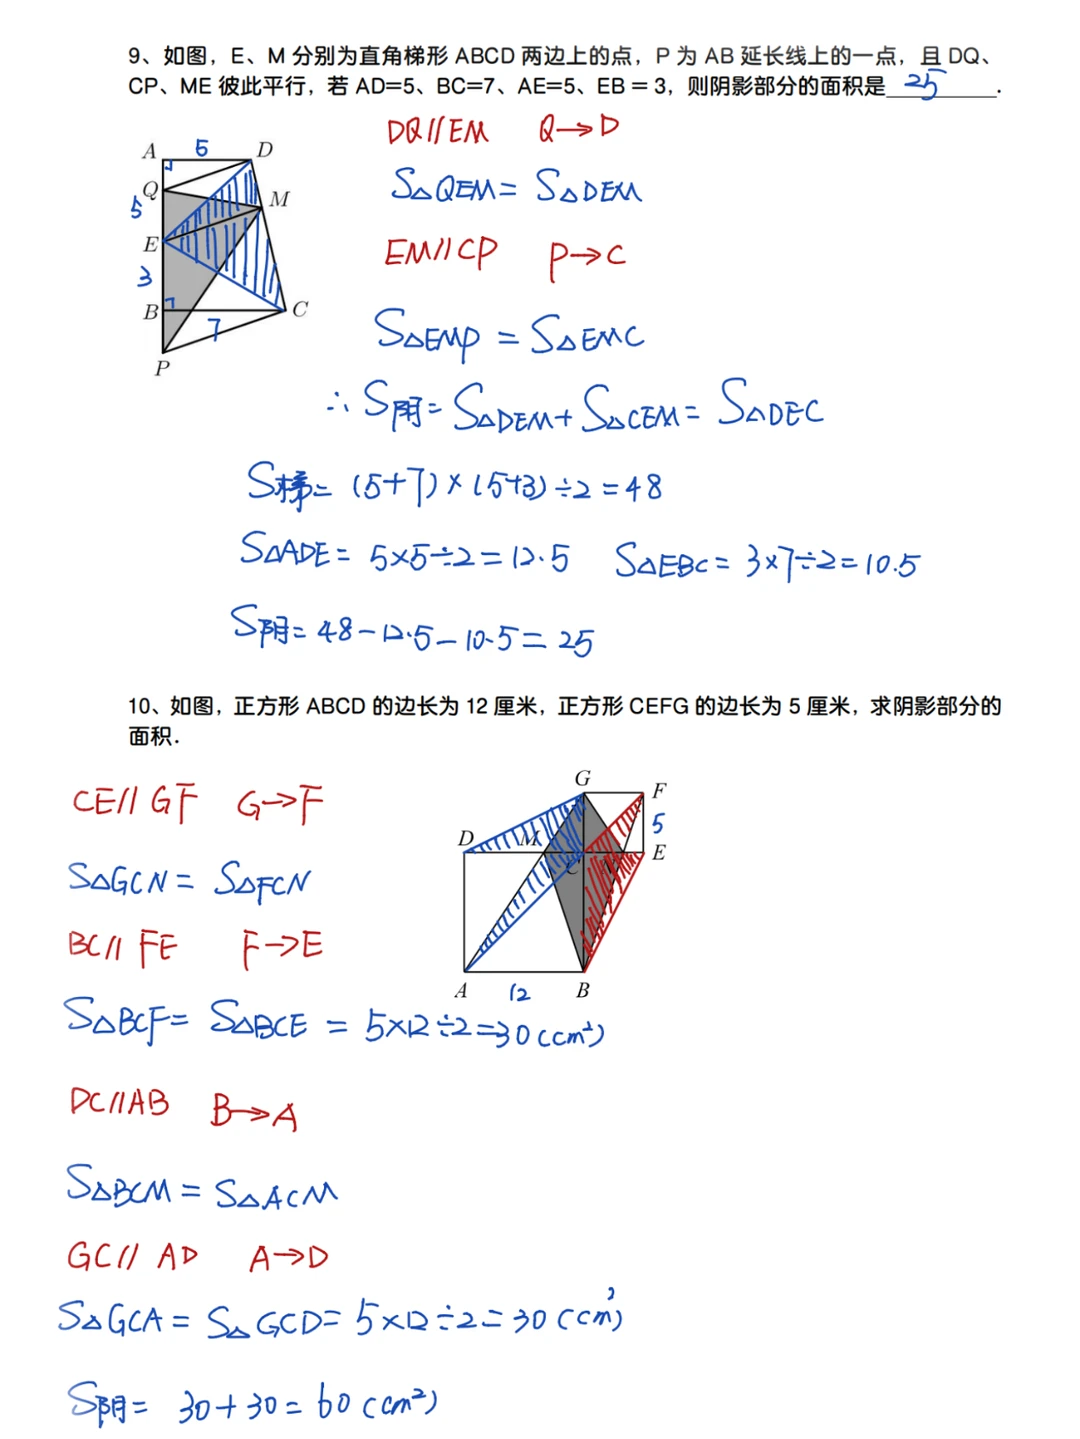 9、如图，E、M 分别为直角梯形 ABCD 两边上的点，P 为 AB 延长线上的一点，且 DQ、
CP、ME 彼此平行，若 AD=5、BC=7、AE=5、EB = 3，则阴影部分的面积是 25 .
DQ//EM Q→D
A 5 D
S△QEM = S△DEM
Q
M
5
E
EM//CP P→C
3
B C
7
S△EMP = S△EMC
P
∴ S阴 = S△DEM + S△CEM = S△DEC
S梯 = (5+7)×(5+3)÷2 = 48
S△ADE = 5×5÷2 = 12.5 S△EBC = 3×7÷2 = 10.5
S阴 = 48-12.5-10.5 = 25
10、如图，正方形 ABCD 的边长为 12 厘米，正方形 CEFG 的边长为 5 厘米，求阴影部分的
面积.
G
CE//GF G→F
F
5
D M
E
C
S△GCN = S△FCN
BC//FE F→E
A 12 B
S△BCF = S△BCE = 5×12÷2=30(cm²)
DC//AB B→A
S△BCM = S△ACM
GC//AD A→D
S△GCA = S△GCD = 5×12÷2 = 30(cm²)
S阴 = 30+30 = 60(cm²)